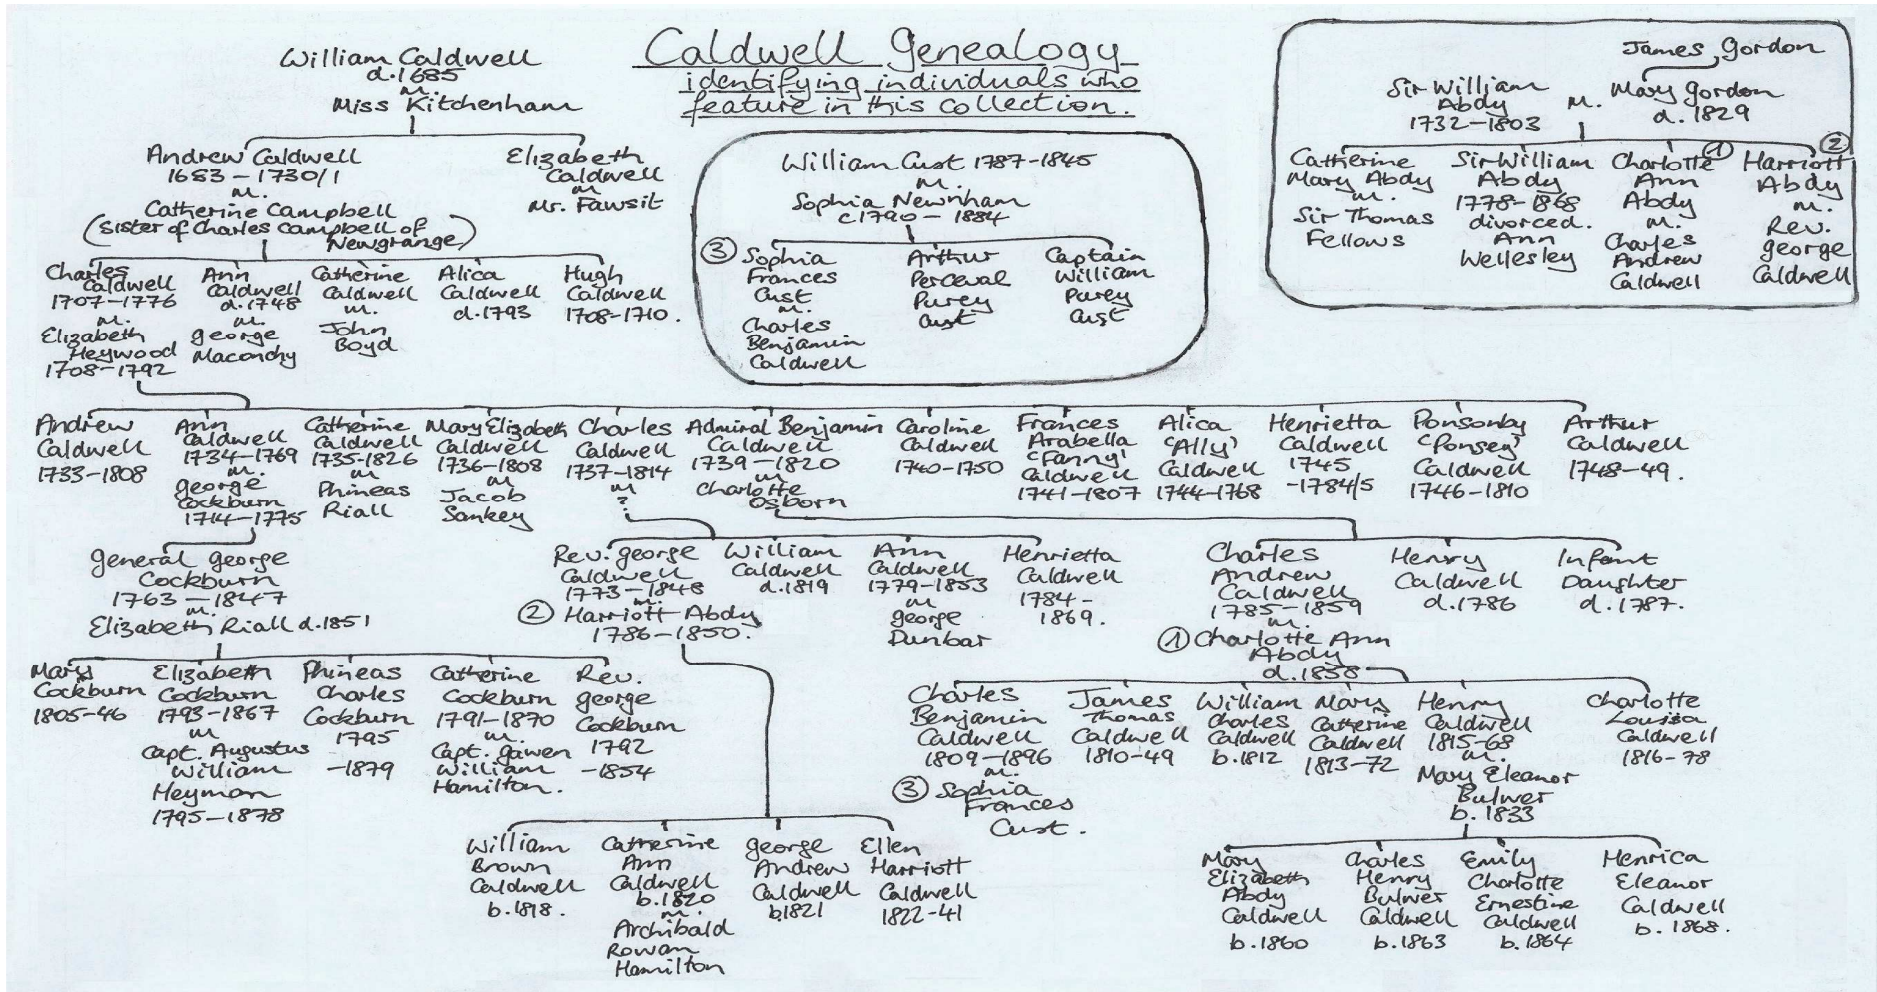 Caldwell Genealogy
identifying individuals who
feature in this collection.
William Caldwell
d.1685
m.
Miss Kitchenham
Andrew Caldwell
1683-1730/1
m.
Catherine Campbell
(sister of Charles Campbell of
Newgrange)
Elizabeth
Caldwell
m
Mr. Fawsit
William Cust 1787-1845
m.
Sophia Newnham
c1790 - 1884
③ Sophia
Frances
Cust
m.
Charles
Benjamin
Caldwell
Arthur
Perceval
Purey
Cust
Captain
William
Purey
Cust
James Gordon
Sir William
Abdy
1732-1803
m.
Mary Gordon
d. 1829
Catherine
Mary Abdy
m.
Sir Thomas
Fellows
Sir William
Abdy
1778-1868
divorced.
Ann
Wellesley
Charlotte ①
Ann
Abdy
m.
Charles
Andrew
Caldwell
Harriott ②
Abdy
m.
Rev.
George
Caldwell
Charles
Caldwell
1707-1776
m.
Elizabeth
Heywood
1708-1792
Ann
Caldwell
d.1748
m.
George
Maconchy
Catherine
Caldwell
m.
John
Boyd
Alica
Caldwell
d.1793
Hugh
Caldwell
1708-1710.
Andrew
Caldwell
1733-1808
Ann
Caldwell
1734-1769
m.
George
Cockburn
1714-1775
Catherine
Caldwell
1735-1826
m
Phineas
Riall
Mary Elizabeth
Caldwell
1736-1808
m
Jacob
Sankey
Charles
Caldwell
1737-1814
m
?
Admiral Benjamin
Caldwell
1739-1820
m
Charlotte
Osborn
Caroline
Caldwell
1740-1750
Frances
Arabella
'Fanny'
Caldwell
1741-1807
Alica
'Ally'
Caldwell
1744-1768
Henrietta
Caldwell
1745
-1784/5
Ponsonby
'Ponsey'
Caldwell
1746-1810
Arthur
Caldwell
1748-49.
General George
Cockburn
1763-1847
m.
Elizabeth Riall d.1851
Rev. George
Caldwell
1773-1848
m.
② Harriott Abdy
1786-1850.
William
Caldwell
d.1819
Ann
Caldwell
1779-1853
m
George
Dunbar
Henrietta
Caldwell
1784-
1869.
Charles
Andrew
Caldwell
1785-1859
m.
① Charlotte Ann
Abdy
d.1858
Henry
Caldwell
d.1786
Infant
Daughter
d.1787.
Mary
Cockburn
1805-46
Elizabeth
Cockburn
1793-1867
m
Capt. Augustus
William
Heyman
1795-1878
Phineas
Charles
Cockburn
1795
-1879
Catherine
Cockburn
1791-1870
m.
Capt. Gawen
William
Hamilton.
Rev.
George
Cockburn
1792
-1854
Charles
Benjamin
Caldwell
1809-1896
m.
③ Sophia
Frances
Cust.
James
Thomas
Caldwell
1810-49
William
Charles
Caldwell
b.1812
Mary
Catherine
Caldwell
1813-72
Henry
Caldwell
1815-68
m.
Mary Eleanor
Bulwer
b. 1833
Charlotte
Louisa
Caldwell
1816-78
William
Brown
Caldwell
b.1818.
Catherine
Ann
Caldwell
b.1820
m.
Archibald
Rowan
Hamilton
George
Andrew
Caldwell
b.1821
Ellen
Harriott
Caldwell
1822-41
Mary
Elizabeth
Abdy
Caldwell
b.1860
Charles
Henry
Bulwer
Caldwell
b.1863
Emily
Charlotte
Ernestine
Caldwell
b.1864
Henrica
Eleanor
Caldwell
b.1868.